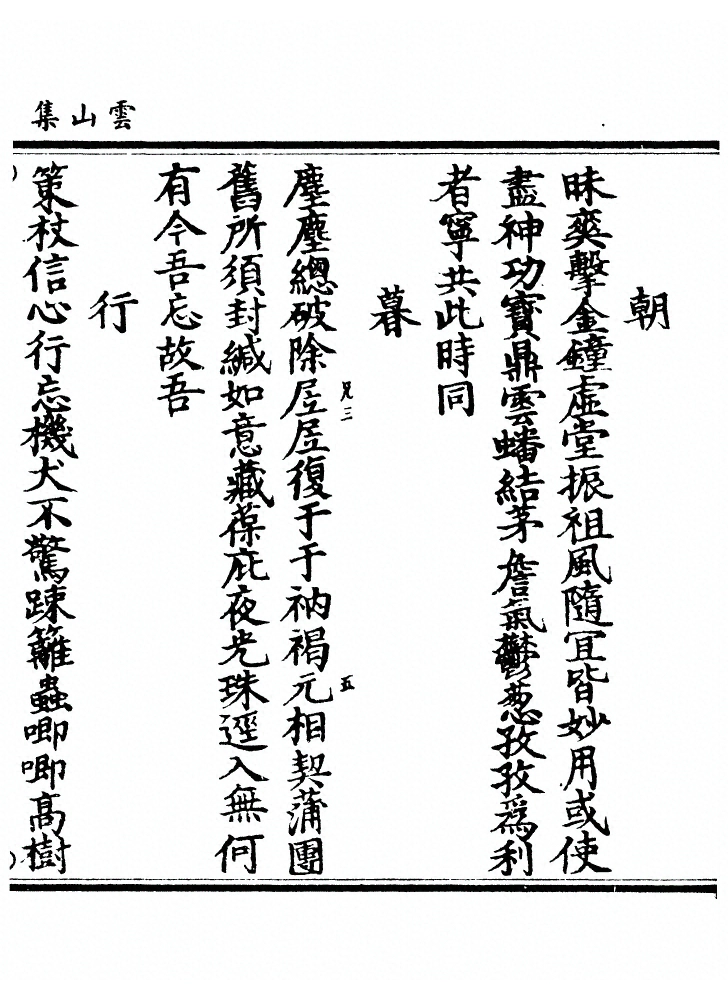 雲山集
朝
昧爽擊金鐘虛堂振祖風隨宜皆妙用或使
盡神功寶鼎雲蟠結茅詹氣鬱葱孜孜為利
者寧共此時同
暮
塵塵總破除居居復于于衲褐元相契蒲團
兄三
五
舊所須封緘如意藏葆庇夜光珠逕入無何
有今吾忘故吾
行
策杖信心行忘機犬不驚踈籬蟲唧唧高樹